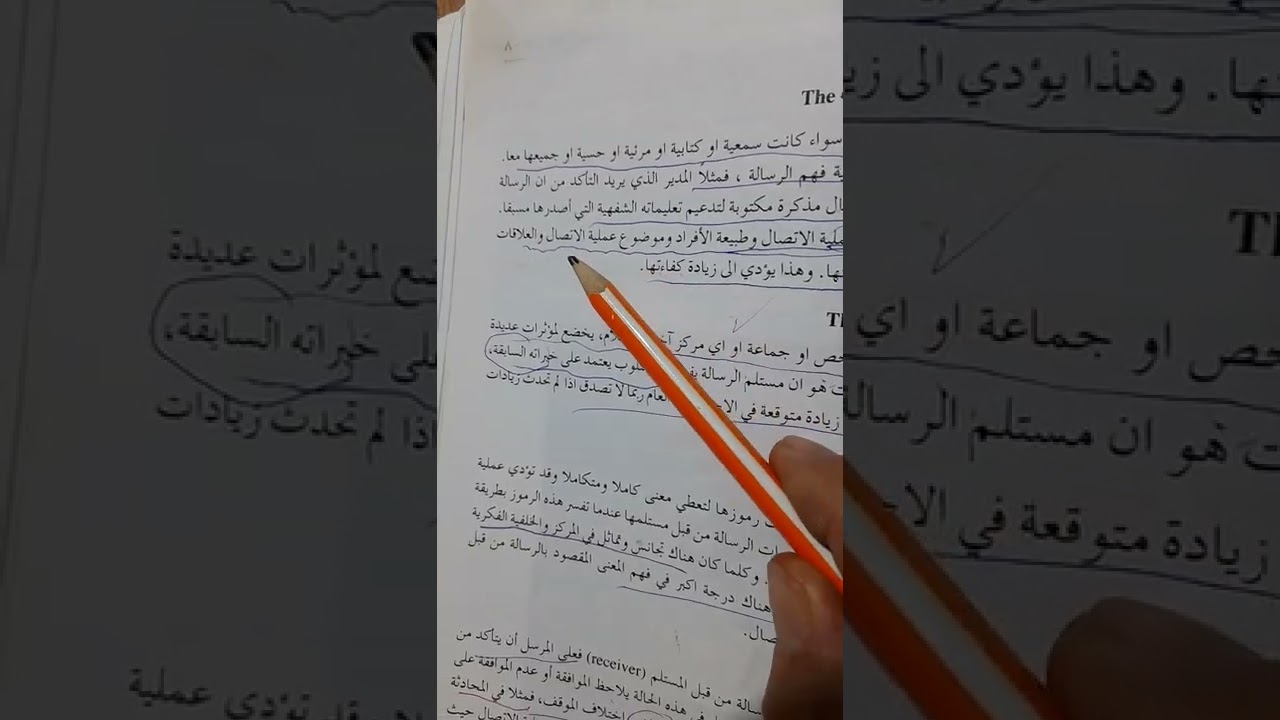 ٨
The
سواء كانت سمعية او كتابية او مرئية او حسية او جميعها معا.
ية فهم الرسالة ، فمثلاً المدير الذي يريد التأكد من ان الرسالة
ال مذكرة مكتوبة لتدعيم تعليماته الشفهية التي أصدرها مسبقا.
ملية الاتصال وطبيعة الأفراد وموضوع عملية الاتصال والعلاقات
تها. وهذا يؤدي الى زيادة كفاءتها.
حص او جماعة او اي مركز يخضع لمؤثرات عديدة
ت هو ان مستلم الرسالة يعتمد على خبراته السابقة،
زيادة متوقعة في ربما لا تصدق اذا لم تحدث زيادات
ت رموزها لتعطي معنى كاملا ومتكاملا وقد تؤدي عملية
ات الرسالة من قبل مستلمها عندما تفسر هذه الرموز بطريقة
. وكلما كان هناك تجانس وتماثل في المركز والخلفية الفكرية
هناك درجة اكبر في فهم المعنى المقصود بالرسالة من قبل
صال.
سالة من قبل المستلم (receiver) فعلى المرسل أن يتأكد من
في هذه الحالة يلاحظ الموافقة أو عدم الموافقة على
اختلاف الموقف، فمثلا في المحادثة
الاتصال حيث